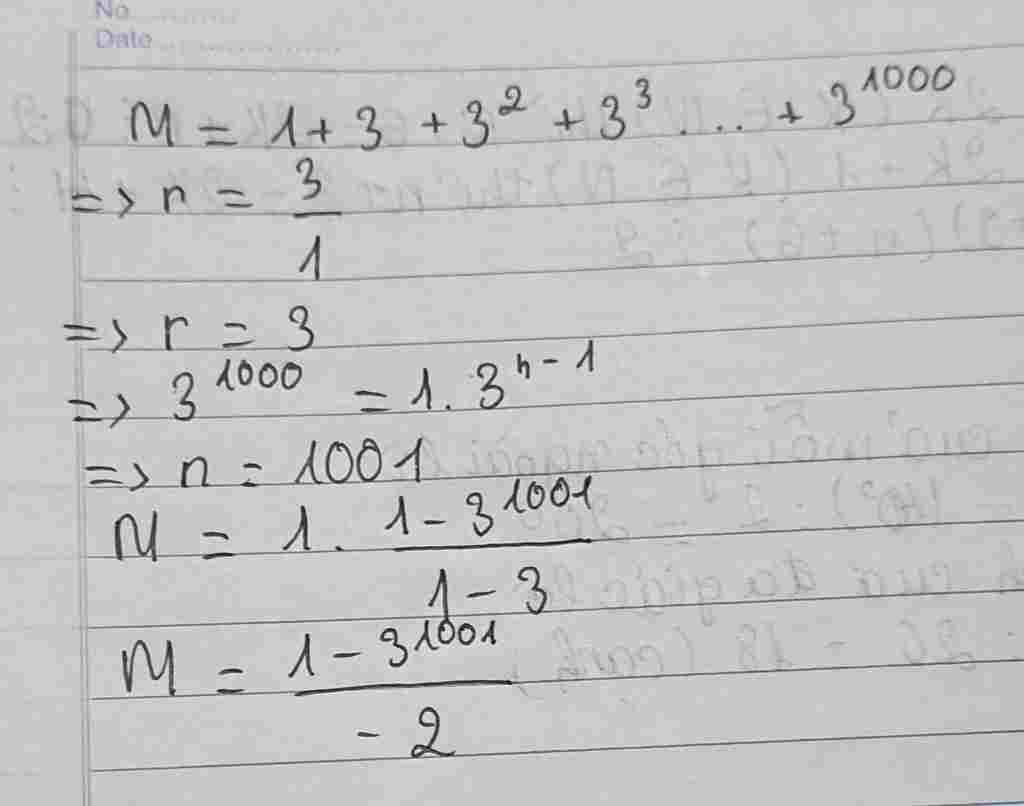 No
Date
M = 1 + 3 + 3² + 3³ ... + 3¹⁰⁰⁰
=> r = 3/1
=> r = 3
=> 3¹⁰⁰⁰ = 1. 3ⁿ⁻¹
=> n = 1001
M = 1. (1 - 3¹⁰⁰¹)/(1 - 3)
M = (1 - 3¹⁰⁰¹)/(-2)